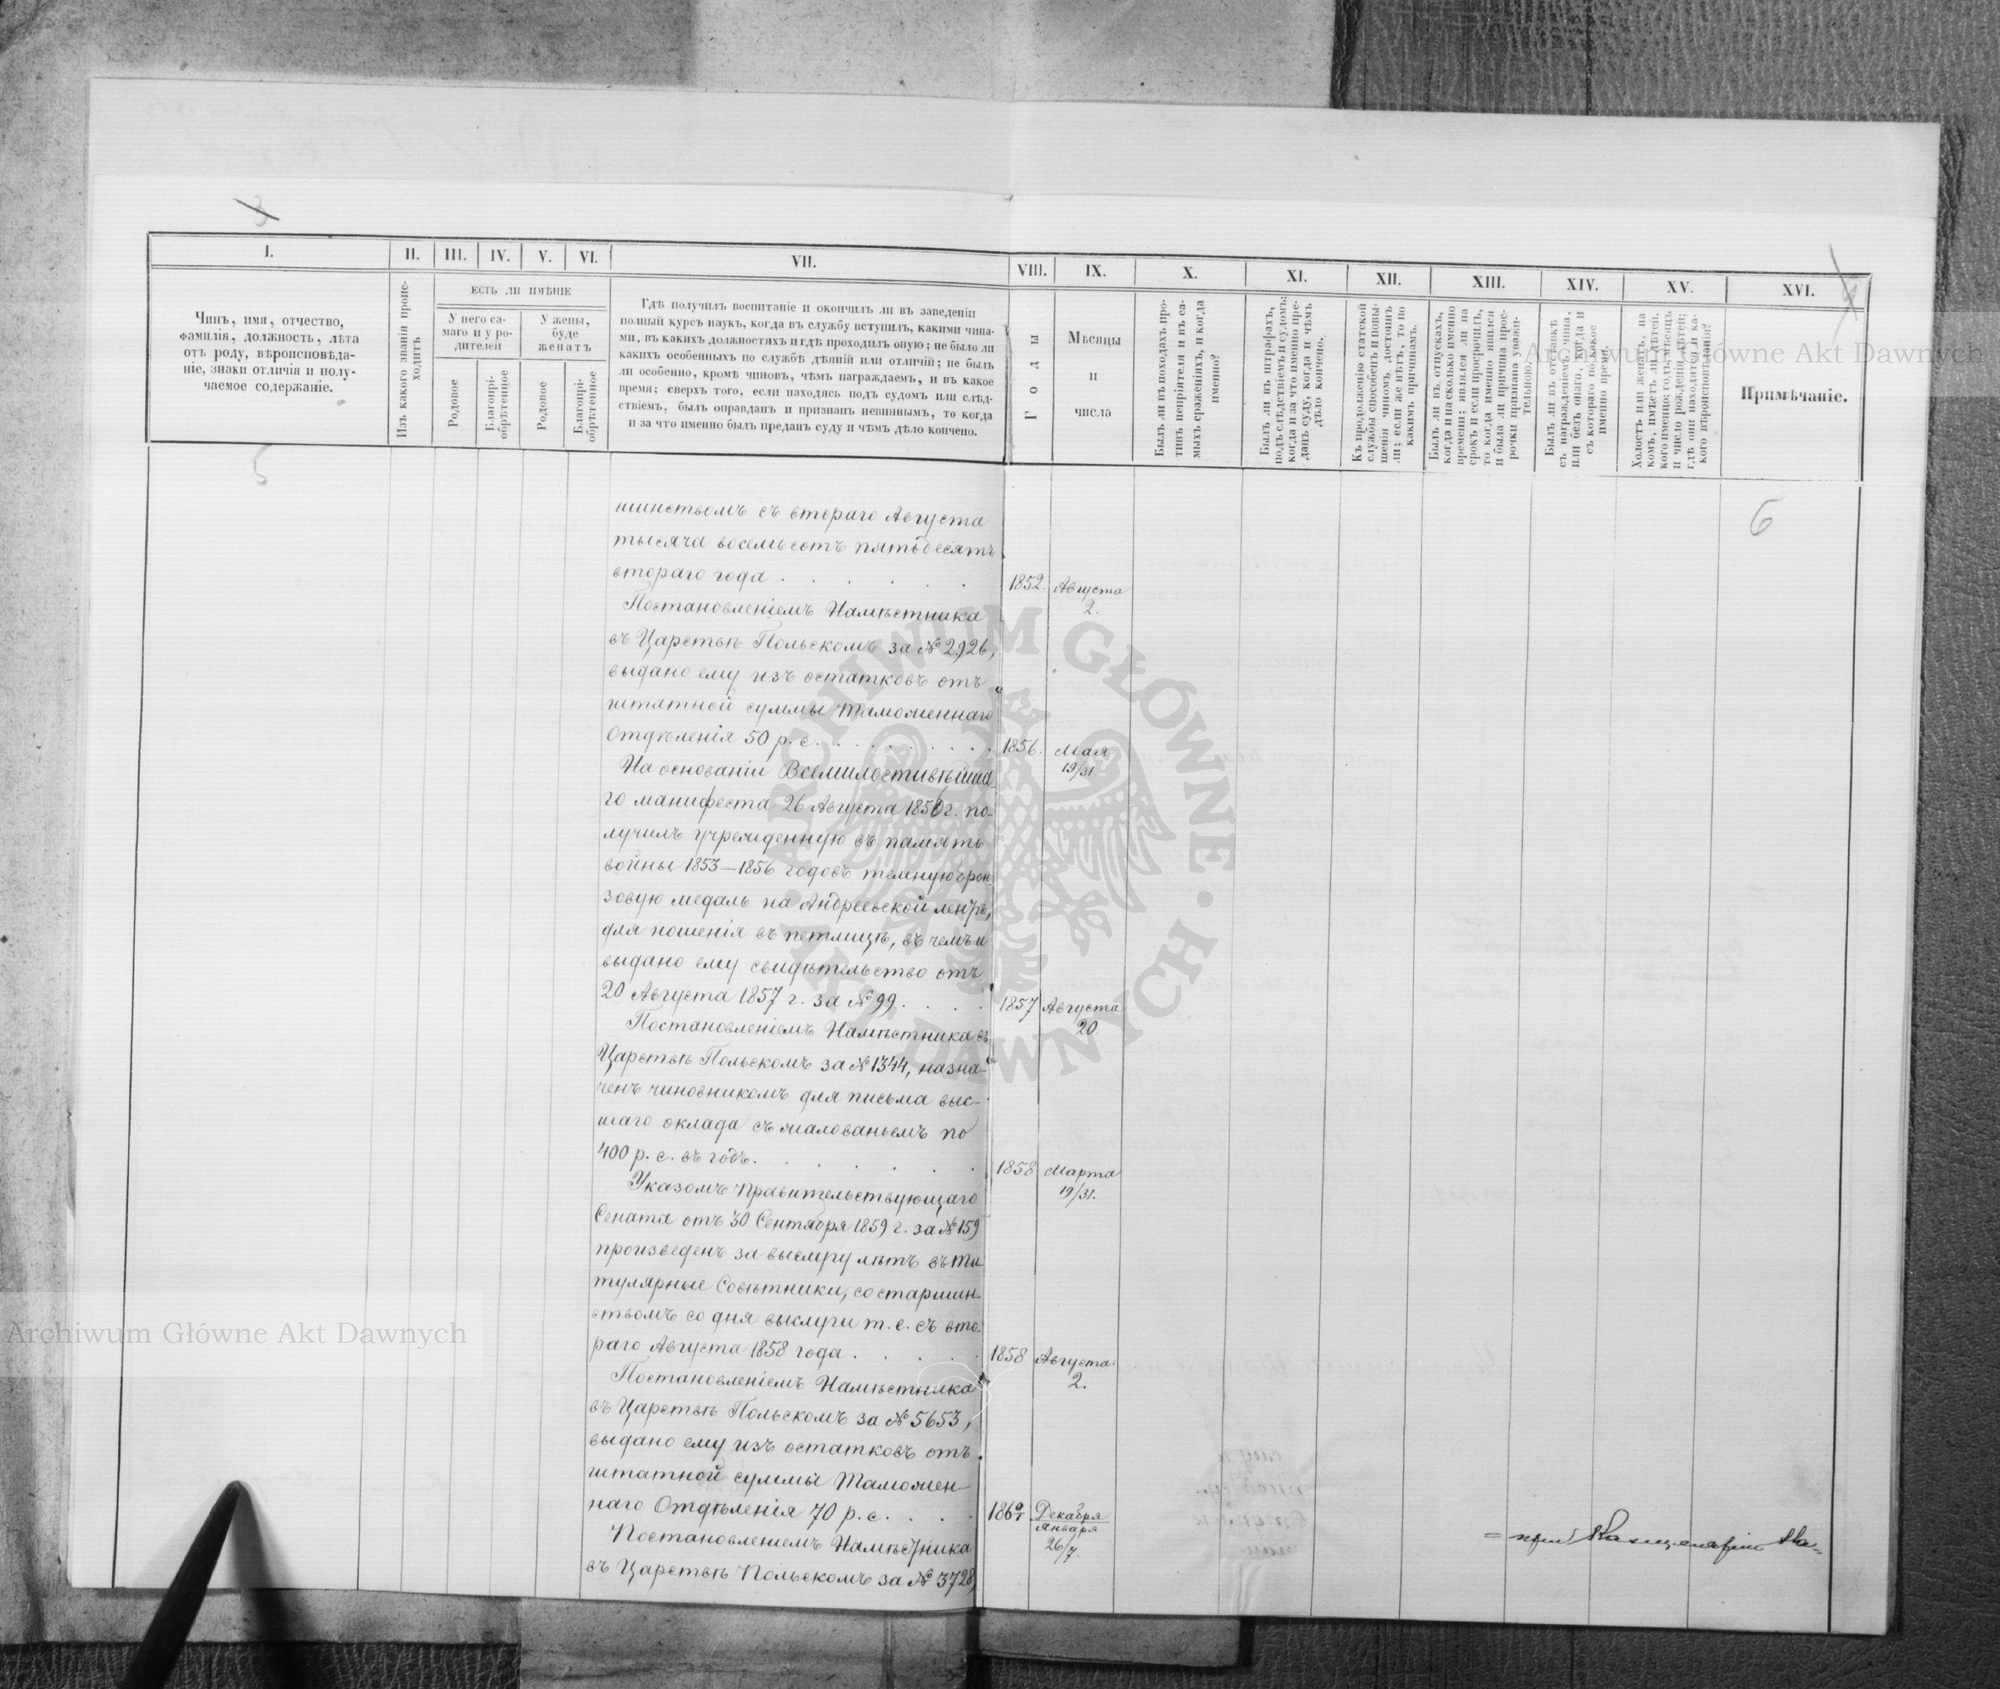 3
I. II. III. IV. V. VI. VII. VIII. IX. X. XI. XII. XIII. XIV. XV. XVI.
Чинъ, имя, отчество,
фамилія, должность, лѣта
отъ роду, вѣроисповѣда-
ніе, знаки отличія и полу-
чаемое содержаніе.
Изъ какого званія проис-
ходитъ
ЕСТЬ ЛИ ИМѢНІЕ
У него са-
маго и у ро-
дителей
У жены,
буде
женатъ
Родовое
Благопрі-
обрѣтенное
Родовое
Благопрі-
обрѣтенное
Гдѣ получилъ воспитаніе и окончилъ ли въ заведеніи
полный курсъ наукъ, когда въ службу вступилъ, какими чина-
ми, въ какихъ должностяхъ и гдѣ проходилъ оную; не было ли
какихъ особенныхъ по службѣ дѣяній или отличій; не былъ
ли особенно, кромѣ чиновъ, чѣмъ награждаемъ, и въ какое
время; сверхъ того, если находясь подъ судомъ или слѣд-
ствіемъ, былъ оправданъ и признанъ невиннымъ, то когда
и за что именно былъ преданъ суду и чѣмъ дѣло кончено.
Годы
Мѣсяцы
и
числа
Былъ ли въ походахъ про-
тивъ непріятеля и въ са-
мыхъ сраженіяхъ, и когда
именно?
Былъ ли въ штрафахъ,
подъ слѣдствіемъ и судомъ;
когда и за что именно пре-
данъ суду, когда и чѣмъ
дѣло кончено.
Къ продолженію статской
службы способенъ и повы-
шенія чиномъ достоинъ
ли; если же нѣтъ, то по
какимъ причинамъ.
Былъ ли въ отпускахъ,
когда и на сколько именно
времени; явился ли на
срокъ и если просрочилъ,
то когда именно явился
и была ли причина прос-
рочки признана уважи-
тельною.
Былъ ли въ отставкѣ
съ награжденіемъ чина,
или безъ онаго, когда и
съ котораго по какое
именно время.
Холостъ или женатъ, на
комъ, имѣетъ ли дѣтей,
кого именно; годъ, мѣсяцъ
и число рожденія дѣтей;
гдѣ они находятся и ка-
кого вѣроисповѣданія?
Примѣчаніе.
5
6
шинствомъ съ втораго Августа
тысяча восемьсотъ пятьдесятъ
втораго года . . . . . . 1852. Августа
2.
Постановленіемъ Намѣстника
въ Царствѣ Польскомъ за № 2926,
выдано ему изъ остатковъ отъ
штатной суммы Таможеннаго
Отдѣленія 50 р. с. . . . . . . . . 1856. Мая
19/31
На основаніи Всемилостивѣйша
го манифеста 26 Августа 1856 г. по-
лучилъ учрежденную въ память
войны 1853—1856 годовъ темнуюброн
зовую медаль на Андреевской лентѣ,
для ношенія въ петлицѣ, въ чемъ и
выдано ему свидѣтельство отъ
20 Августа 1857 г. за № 99. . . . 1857 Августа
20
Постановленіемъ Намѣстника въ
Царствѣ Польскомъ за № 1344, назна-
ченъ чиновникомъ для письма выс-
шаго оклада съ жалованьемъ по
400 р. с. въ годъ. . . . . . . 1858 Марта
19/31.
Указомъ Правительствующаго
Сената отъ 30 Сентября 1859 г. за № 159
произведенъ за выслугу лѣтъ въ Ти
тулярные Совѣтники, со старшин-
ствомъ со дня выслуги т. е. съ вто-
раго Августа 1858 года . . . . . 1858 Августа.
2.
Постановленіемъ Намѣстника
въ Царствѣ Польскомъ за № 5653,
выдано ему изъ остатковъ отъ
штатной суммы Таможен-
наго Отдѣленія 70 р. с. . . . . 1860/1 Декабря
Января
26/7.
Постановленіемъ Намѣстника
въ Царствѣ Польскомъ за № 3728,
Archiwum Główne Akt Dawnych
Archiwum Główne Akt Dawnych
ARCHIWUM GŁÓWNE AKT DAWNYCH